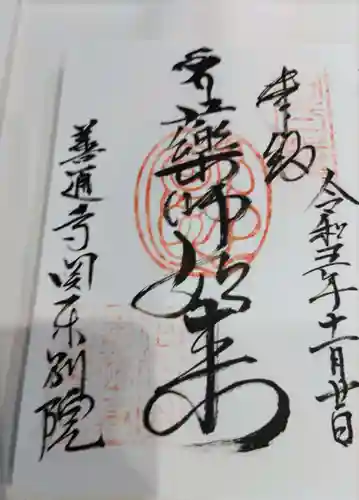 奉納
令和五年十一月廿日
藥師如来
善通寺関東別院